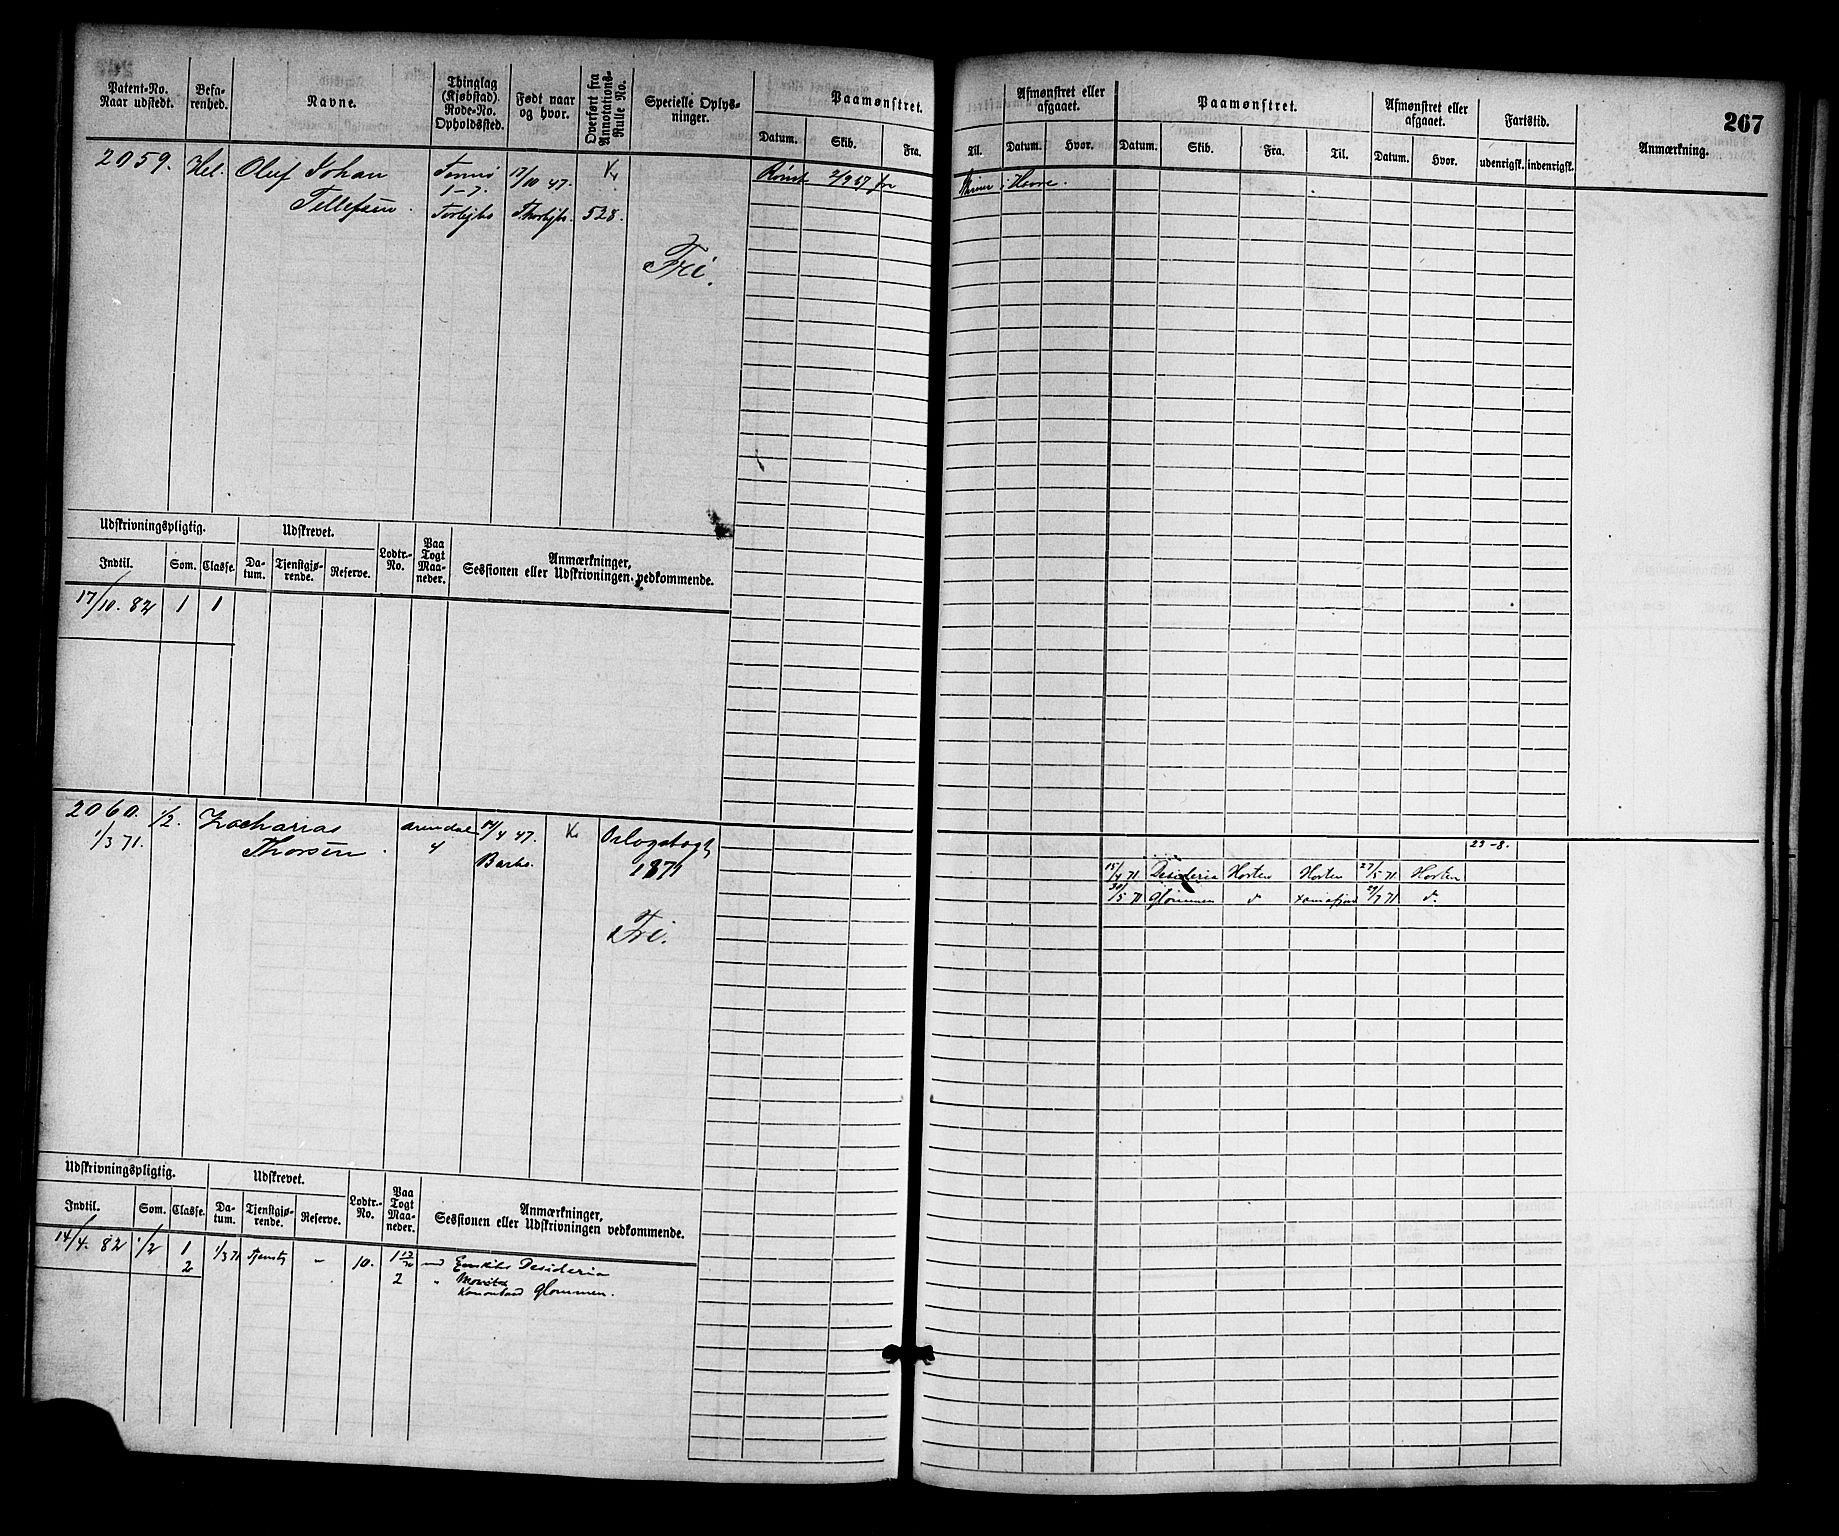 267
Patent-No. Naar udstedt.
Befarenhed.
Navne.
Thinglag (Kjøbstad). Rode-No. Opholdssted.
Født naar og hvor.
Overført fra Annotations-Rulle No.
Specielle Oplysninger.
Paamønstret.
Datum. Skib. Fra. Til.
Afmønstret eller afgaaet.
Datum. Hvor.
Paamønstret.
Datum. Skib. Fra. Til.
Afmønstret eller afgaaet.
Datum. Hvor.
Fartstid.
udenrigsk. indenrigsk.
Anmærkning.
2059. Hel. Oluf Johan 17/10 47. Rømt 2/9 67 fra
Tellefsen. 1-7. 528.
i Havre.
Fri.
Udskrivningspligtig. Udskrevet. Lodtr.-No. Paa Togt Maaneder. Anmærkninger, Sessionen eller Udskrivningen vedkommende.
Indtil. Som. Classe. Datum. Tjenstgjørende. Reserve.
17/10. 82 1 1
2060. 1/2. Zacharias Arendal 14/4 47. K.
1/3 71. Thorsen. 4 Barbo. 1871
23-8.
15/4 71 Desideria Horten Horten 27/5 71 Horten
30/5 71 Glommen d 29/7 71 d.
Fri.
Udskrivningspligtig. Udskrevet. Lodtr.-No. Paa Togt Maaneder. Anmærkninger, Sessionen eller Udskrivningen vedkommende.
Indtil. Som. Classe. Datum. Tjenstgjørende. Reserve.
14/4. 82 1/2 1 1/3 71 Tjenstg. " 10. 1 Desideria
2 2 " Glommen.